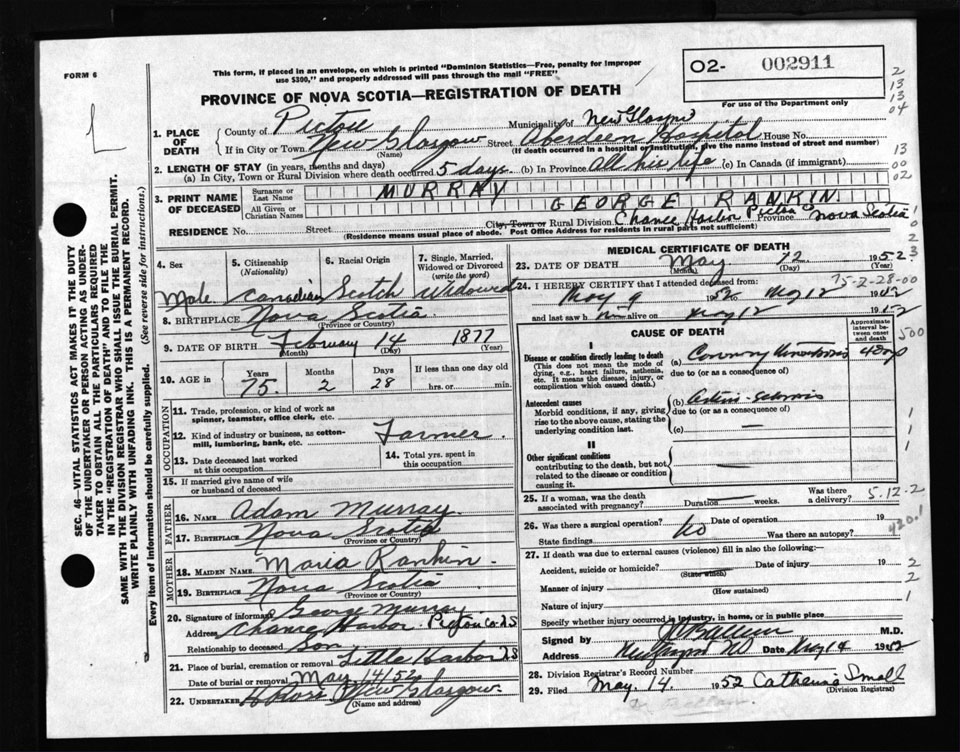 FORM 6
This form, if placed in an envelope, on which is printed "Dominion Statistics—Free, penalty for improper
use $300," and properly addressed will pass through the mail "FREE"
O2- 002911
For use of the Department only
PROVINCE OF NOVA SCOTIA—REGISTRATION OF DEATH
1. PLACE OF DEATH
County of Pictou Municipality of New Glasgow
If in City or Town New Glasgow Street Aberdeen Hospital House No.
(Name) (If death occurred in a hospital or institution, give the name instead of street and number)
2. LENGTH OF STAY (in years, months and days)
(a) In City, Town or Rural Division where death occurred 5 days (b) In Province All his life (c) In Canada (if immigrant)
3. PRINT NAME OF DECEASED
Surname or Last Name MURRAY
All Given or Christian Names GEORGE RANKIN
RESIDENCE No. Street City, Town or Rural Division Chance Harbor Pictou Province Nova Scotia
(Residence means usual place of abode. Post Office Address for residents in rural parts not sufficient)
4. Sex
Male
5. Citizenship (Nationality)
Canadian
6. Racial Origin
Scotch
7. Single, Married, Widowed or Divorced (write the word)
Widowed
8. BIRTHPLACE Nova Scotia
(Province or Country)
9. DATE OF BIRTH February 14 1877
(Month) (Day) (Year)
10. AGE in Years Months Days If less than one day old
75 2 28 hrs. or min.
OCCUPATION
11. Trade, profession, or kind of work as
spinner, teamster, office clerk, etc.
12. Kind of industry or business, as cotton-
mill, lumbering, bank, etc.
Farmer
13. Date deceased last worked
at this occupation
14. Total yrs. spent in
this occupation
15. If married give name of wife
or husband of deceased
FATHER
16. NAME Adam Murray
17. BIRTHPLACE Nova Scotia
(Province or Country)
MOTHER
18. MAIDEN NAME Maria Rankin
19. BIRTHPLACE Nova Scotia
(Province or Country)
20. Signature of informant George Murray
Address Chance Harbor Pictou Co. NS
Relationship to deceased Son
21. Place of burial, cremation or removal Little Harbor NS
Date of burial or removal May 14/52
22. UNDERTAKER H Ross New Glasgow
(Name and address)
MEDICAL CERTIFICATE OF DEATH
23. DATE OF DEATH May 12 1952
(Month) (Day) (Year)
24. I HEREBY CERTIFY that I attended deceased from:
75-2-28-00
May 9 1952 to May 12 1952
and last saw h m alive on May 12 1952
CAUSE OF DEATH
Approximate interval between onset and death
I
Disease or condition directly leading to death
(This does not mean the mode of
dying, e.g., heart failure, asthenia,
etc. It means the disease, injury, or
complication which caused death.)
(a) Coronary Thrombosis 4 days
due to (or as a consequence of)
Antecedent causes
Morbid conditions, if any, giving
rise to the above cause, stating the
underlying condition last.
(b) Arterio-sclerosis
due to (or as a consequence of)
(c) —
II
Other significant conditions
contributing to the death, but not
related to the disease or condition
causing it.
25. If a woman, was the death
associated with pregnancy? Duration weeks. Was there
a delivery?
5.12.2
26. Was there a surgical operation? No Date of operation 19
State findings Was there an autopsy?
420.1
27. If death was due to external causes (violence) fill in also the following:—
Accident, suicide or homicide? Date of injury 19
(State which)
Manner of injury
(How sustained)
Nature of injury
Specify whether injury occurred in industry, in home, or in public place
Signed by M.D.
Address New Glasgow NS Date May 14 1952
28. Division Registrar's Record Number
29. Filed May. 14. 1952 Catherine Small
(Division Registrar)
SEC. 46—VITAL STATISTICS ACT MAKES IT THE DUTY
OF THE UNDERTAKER OR PERSON ACTING AS UNDER-
TAKER TO OBTAIN ALL THE PARTICULARS REQUIRED
IN THE "REGISTRATION OF DEATH" AND TO FILE THE
SAME WITH THE DIVISION REGISTRAR WHO SHALL ISSUE THE BURIAL PERMIT.
WRITE PLAINLY WITH UNFADING INK. THIS IS A PERMANENT RECORD.
Every item of information should be carefully supplied. (See reverse side for instructions.)
2
13
13
04
13
00
02
1
0
2
3
500
1
1
1
2
2
1